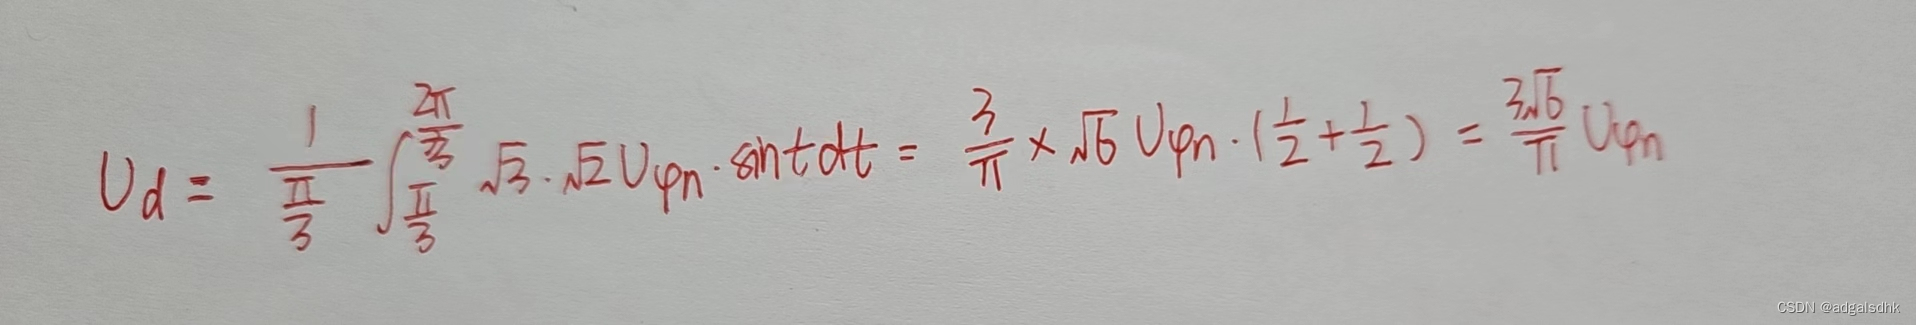 U_d = \frac{1}{\frac{π}{3}} \int_{\frac{π}{3}}^{\frac{2π}{3}} \sqrt{3}·\sqrt{2} U_{φn}·sint dt = \frac{3}{π} × \sqrt{6} U_{φn}·(\frac{1}{2}+\frac{1}{2}) = \frac{3\sqrt{6}}{π} U_{φn}
CSDN @adgalsdhk